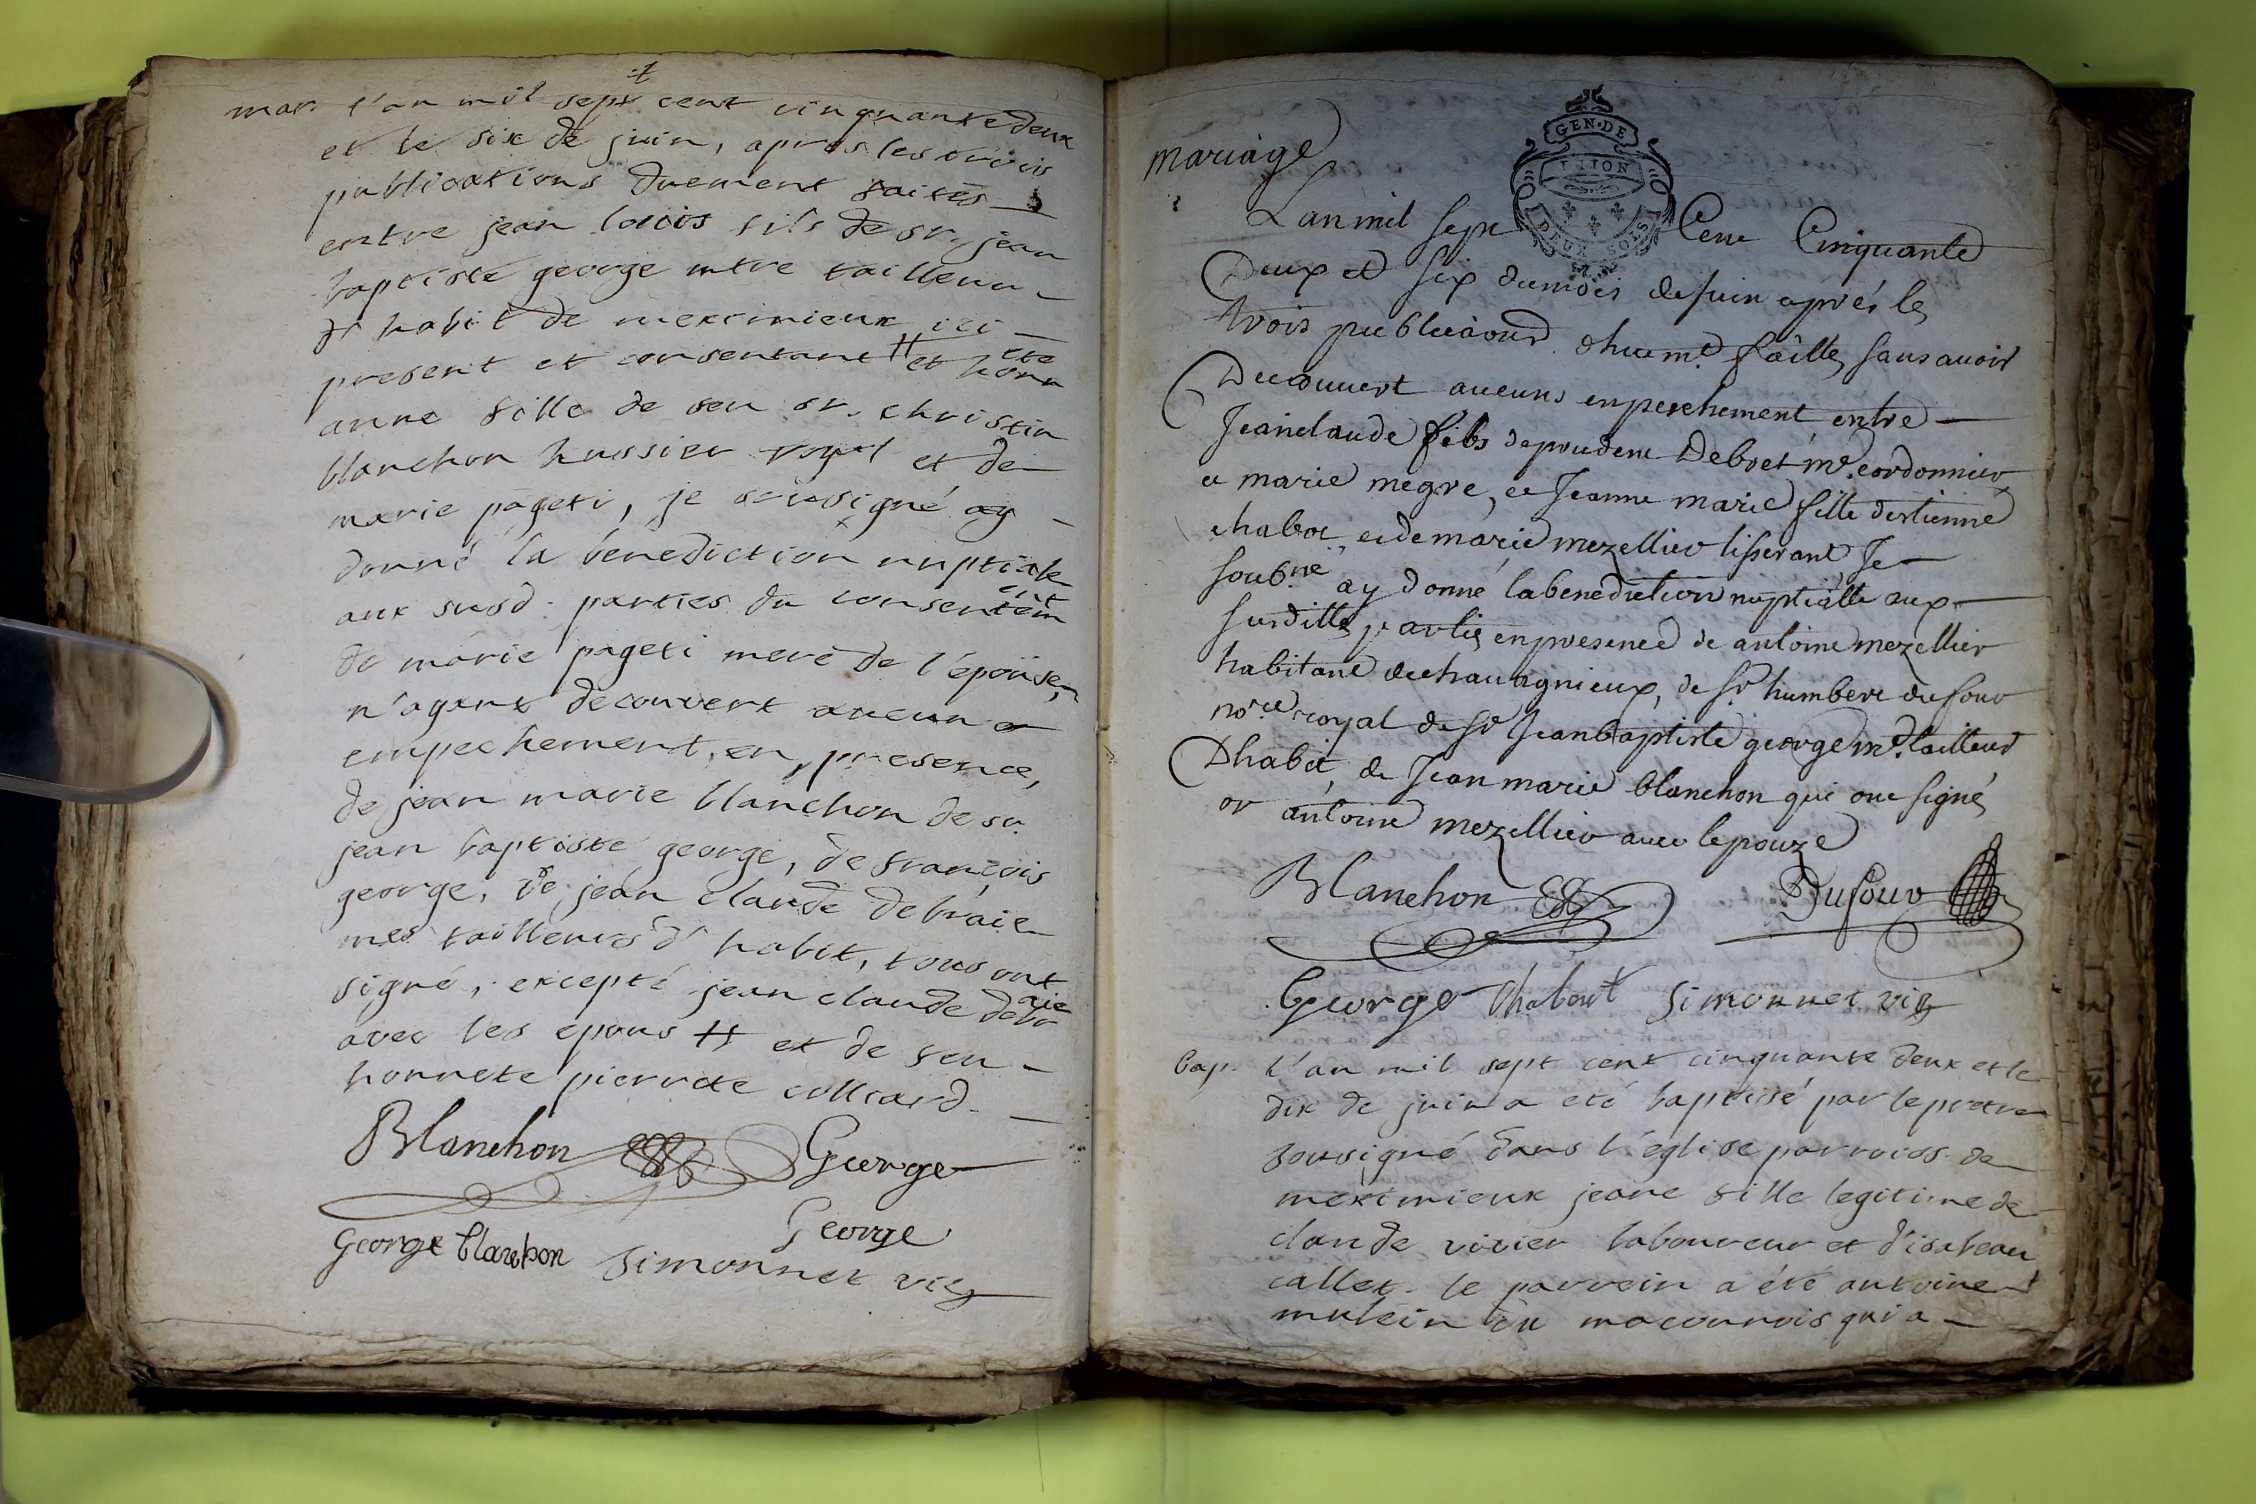 mar. l'an mil sept cent cinquante deux
et le six de juin, apres les trois
publications duement faites
entre jean louis fils de sr. jean
baptiste george mtre tailleur
d'habit de meximieux ici
present et consentant # et honete
anne fille de feu sr. christin
blanchon hussier royal et de
marie pageti, je sousigné ay
donné la benediction nuptiale
aux susd. parties du consentement
de marie pageti mere de l'épouse,
n'ayant decouvert aucun
empechement, en presence,
de jean marie blanchon de sr.
jean baptiste george, de francois
george, de jean claude debraie
mes tailleurs d'habit, tous ont
signé, excepté jean claude debraie
avec les epous # et de feu
honnete pierrete colliard.
Blanchon George
George
George blanchon Simonnet vic
mariage
GEN. DE
DIJON
DEUX SOLS
Lan mil sept Cent Cinquante
Deux et six du mois de juin aprés les
trois publicaons dhuemt. faittes sans avoir
Decouvert aucuns enpeschement entre
Jeanclaude fils de prudent Debret me. cordonnier
et marie megre, et Jeanne marie fille destienne
chabot, et de marie mezellier tisserant Je
soubne ay donné la benediction nuptialle aux
susdittes parties en presence de antoine mezellier
habitant de chavagnieux, de sr humbert dufour
nore. royal de sr Jeanbaptiste george me. tailleur
Dhabit, de Jean marie blanchon qui ont signés
or antoine mezellier avec lepouze
Blanchon Dufour
George Chabout Simonnet vic
bap. l'an mil sept cent cinquante deux et le
dix de juin a eté baptisé par le pretre
sousigné dans l'église parroiss. de
meximieux jeane fille legitime de
claude vivier laboureur et d'isabeau
callet. le parrein a été antoine
mulein du maconnois qui a